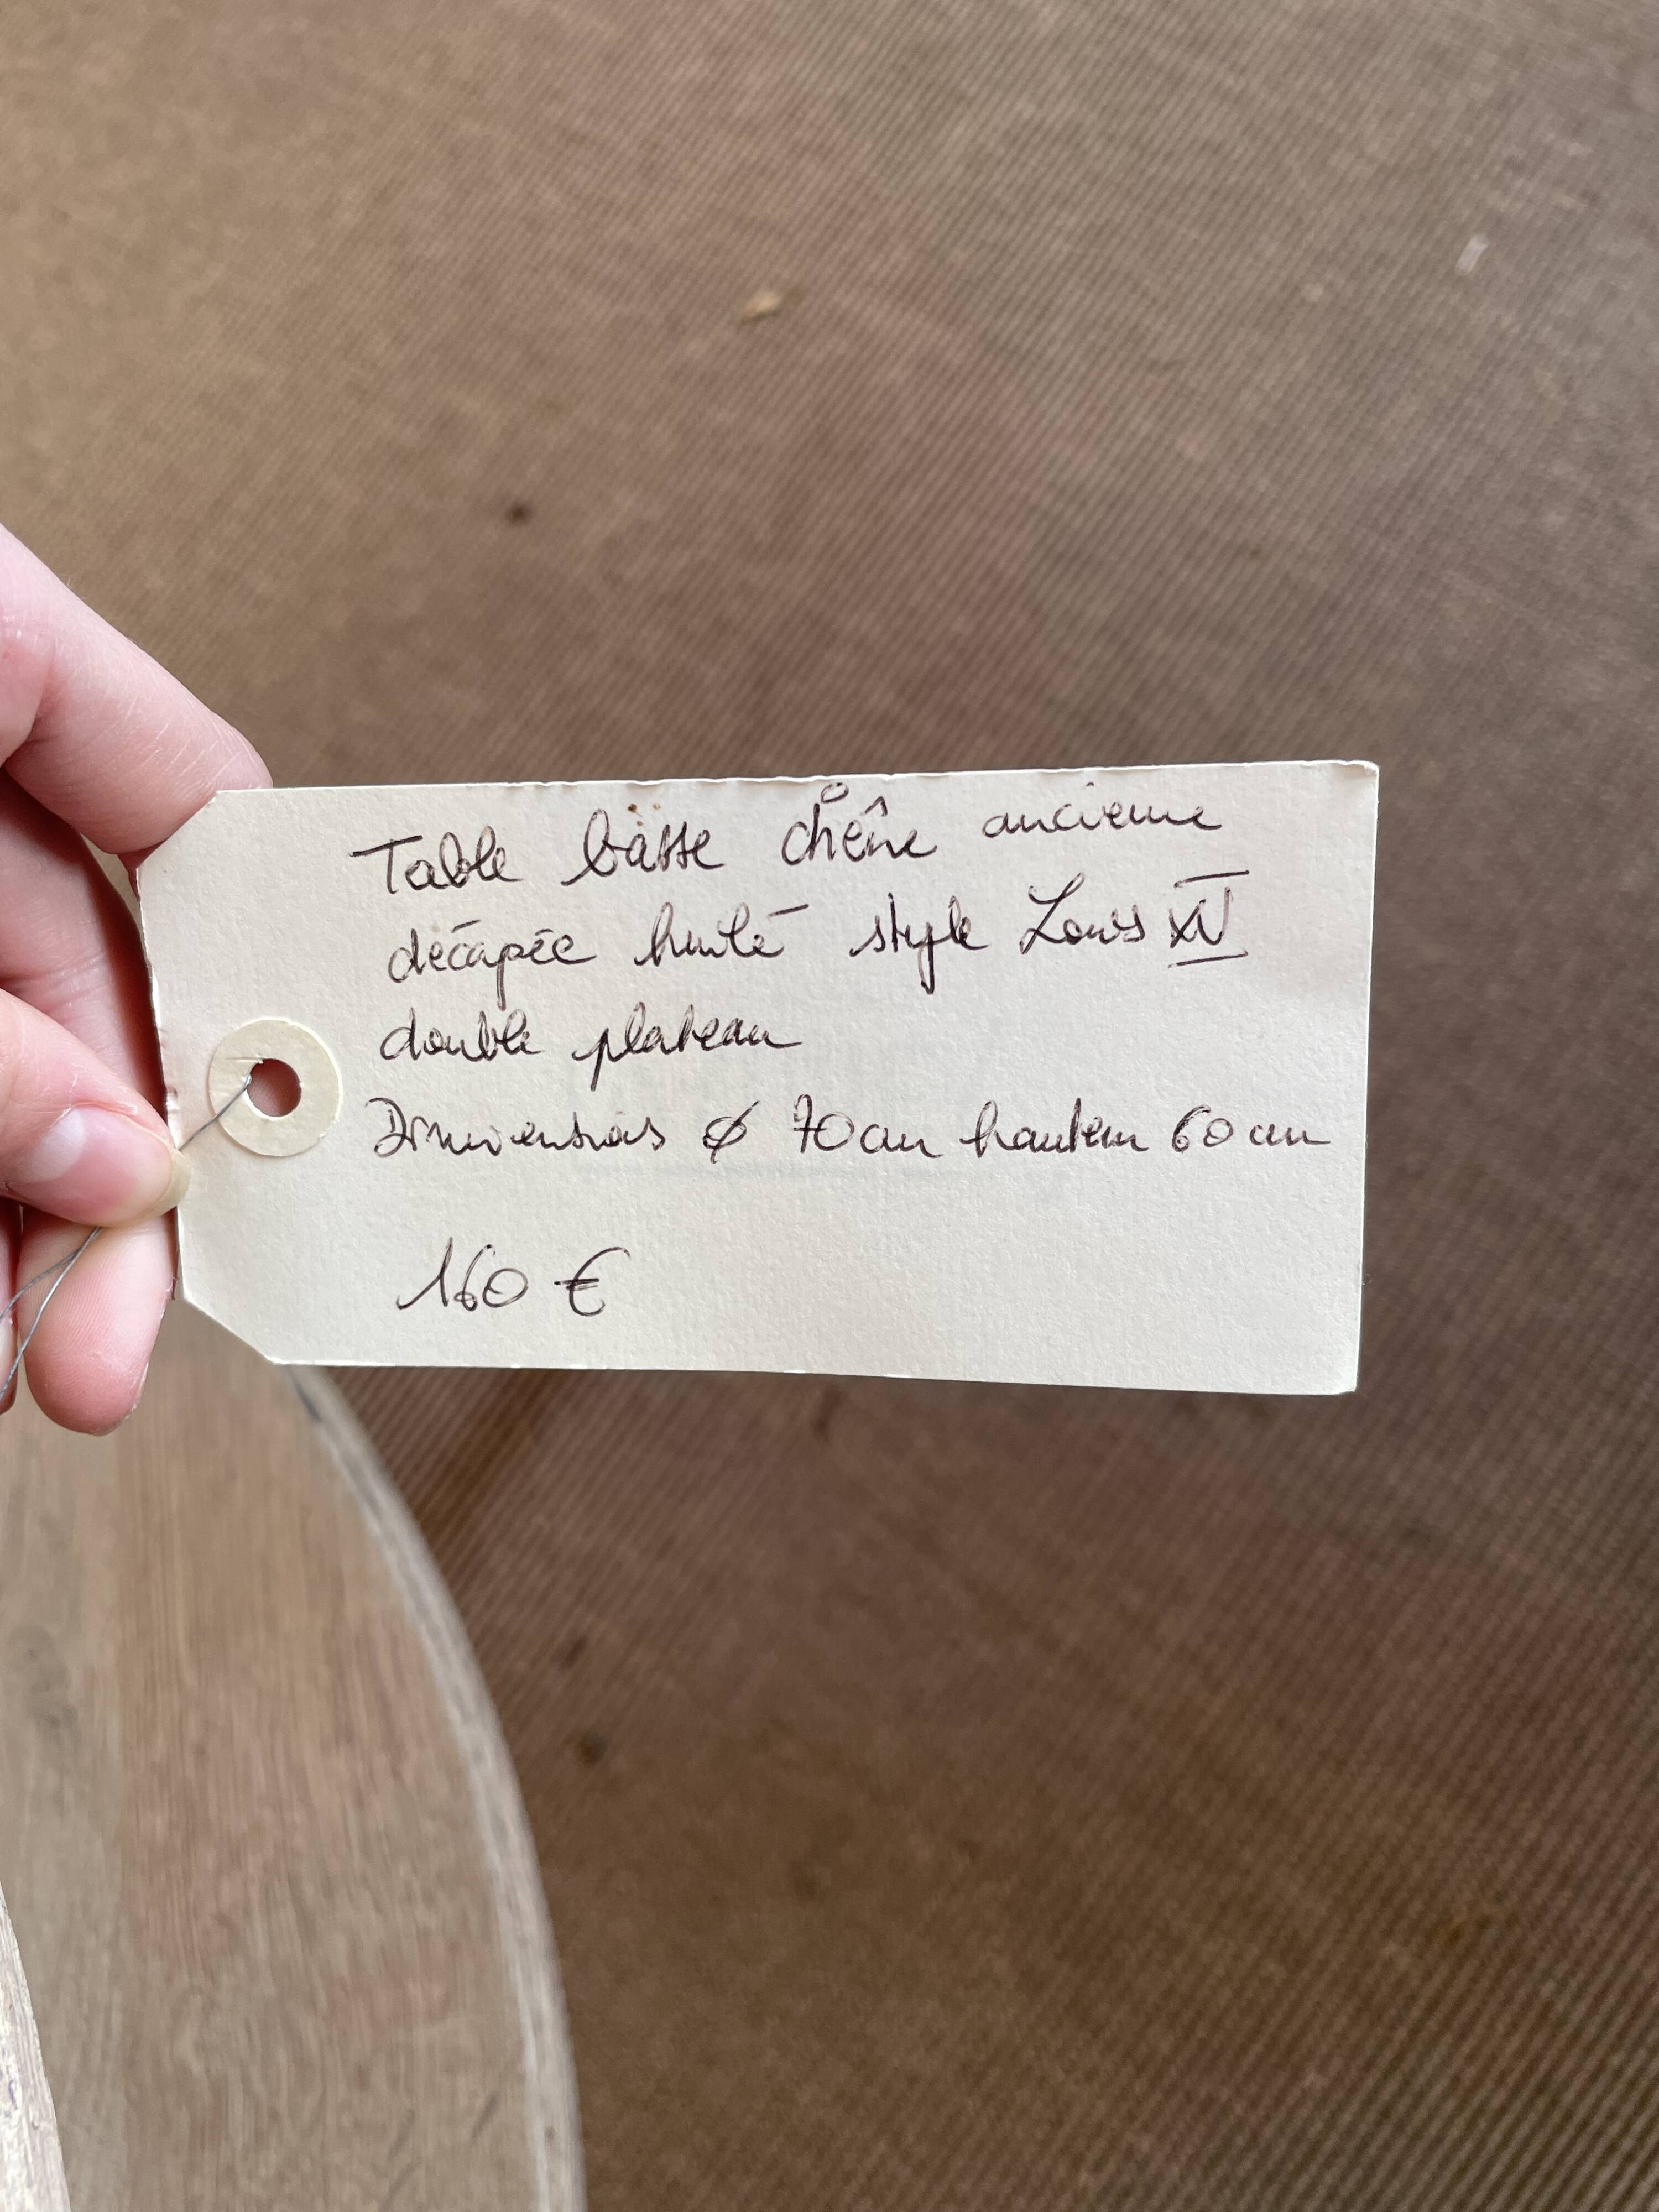 Table basse chêne ancienne
décapée huilé style Louis XV
double plateau
Dimensions ø 70 cm hauteur 60 cm
160 €